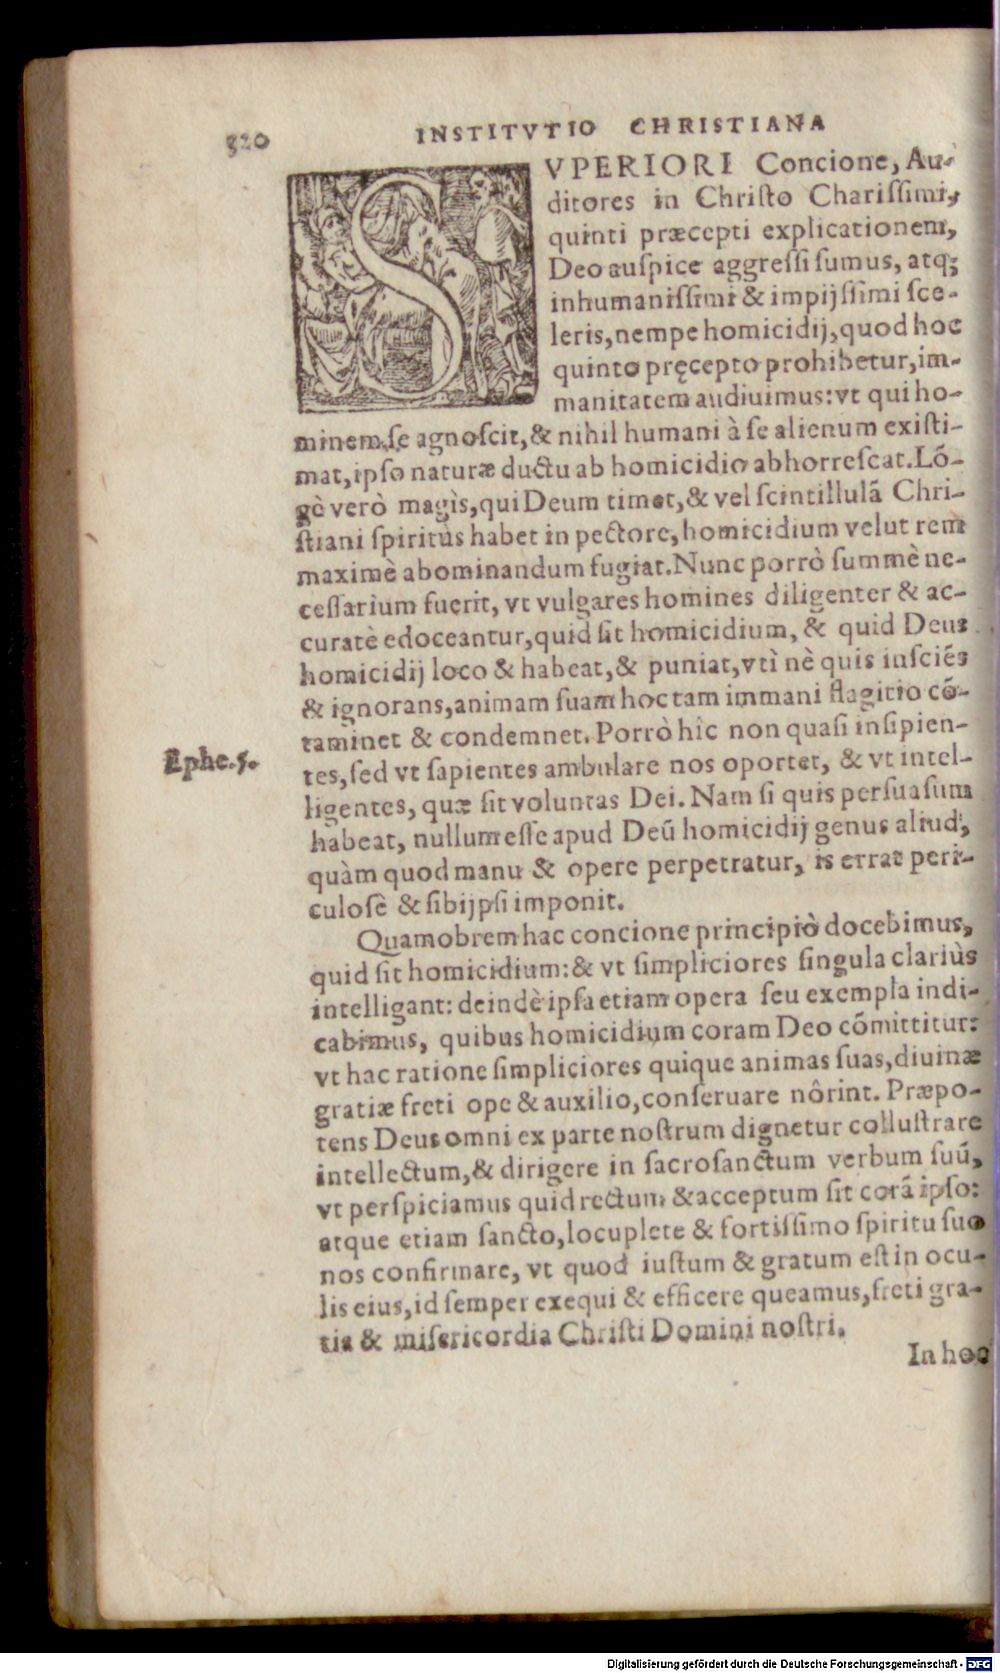 320
INSTITVTIO CHRISTIANA
SVPERIORI Concione, Au-
ditores in Chriſto Chariſſimi,
quinti præcepti explicationem,
Deo auſpice aggreſſi ſumus, atq;
inhumaniſſimi & impijſſimi ſce-
leris, nempe homicidij, quod hoc
quinto pręcepto prohibetur, im-
manitatem audiuimus: vt qui ho-
minem ſe agnoſcit, & nihil humani à ſe alienum exiſti-
mat, ipſo naturæ ductu ab homicidio abhorreſcat. Lõ-
gè verò magìs, qui Deum timet, & vel ſcintillulã Chri-
ſtiani ſpiritùs habet in pectore, homicidium velut rem
maximè abominandum fugiat. Nunc porrò ſummè ne-
ceſſarium fuerit, vt vulgares homines diligenter & ac-
curatè edoceantur, quid ſit homicidium, & quid Deus
homicidij loco & habeat, & puniat, vtì nè quis inſciẽs
& ignorans, animam ſuam hoc tam immani flagitio cõ-
taminet & condemnet. Porrò hîc non quaſi inſipien-
Ephe. 5.
tes, ſed vt ſapientes ambulare nos oportet, & vt intel-
ligentes, quæ ſit voluntas Dei. Nam ſi quis perſuaſum
habeat, nullum eſſe apud Deũ homicidij genus aliud,
quàm quod manu & opere perpetratur, is errat peri-
culoſè & ſibijpſi imponit.
Quamobrem hac concione principiò docebimus,
quid ſit homicidium: & vt ſimpliciores ſingula clariùs
intelligant: deindè ipſa etiam opera ſeu exempla indi-
cabimus, quibus homicidium coram Deo cõmittitur:
vt hac ratione ſimpliciores quique animas ſuas, diuinæ
gratiæ freti ope & auxilio, conſeruare nôrint. Præpo-
tens Deus omni ex parte noſtrum dignetur colluſtrare
intellectum, & dirigere in ſacroſanctum verbum ſuũ,
vt perſpiciamus quid rectum & acceptum ſit corã ipſo:
atque etiam ſancto, locuplete & fortiſſimo ſpiritu ſuo
nos confirmare, vt quod iuſtum & gratum eſt in ocu-
lis eius, id ſemper exequi & efficere queamus, freti gra-
tia & miſericordia Chriſti Domini noſtri.
In hoc
Digitalisierung gefördert durch die Deutsche Forschungsgemeinschaft - DFG